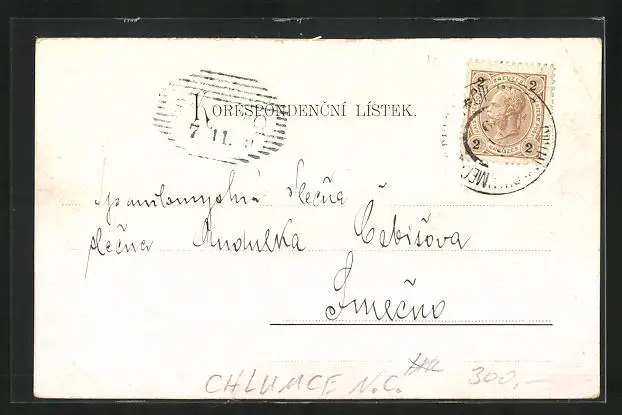 KORESPONDENČNÍ LÍSTEK.
2 2
KREUZER
2 2
7 11.
Spanilomyslná Slečna
slečna Andulka Čebišova
Smečno
CHLUMCE N.C.
300,-